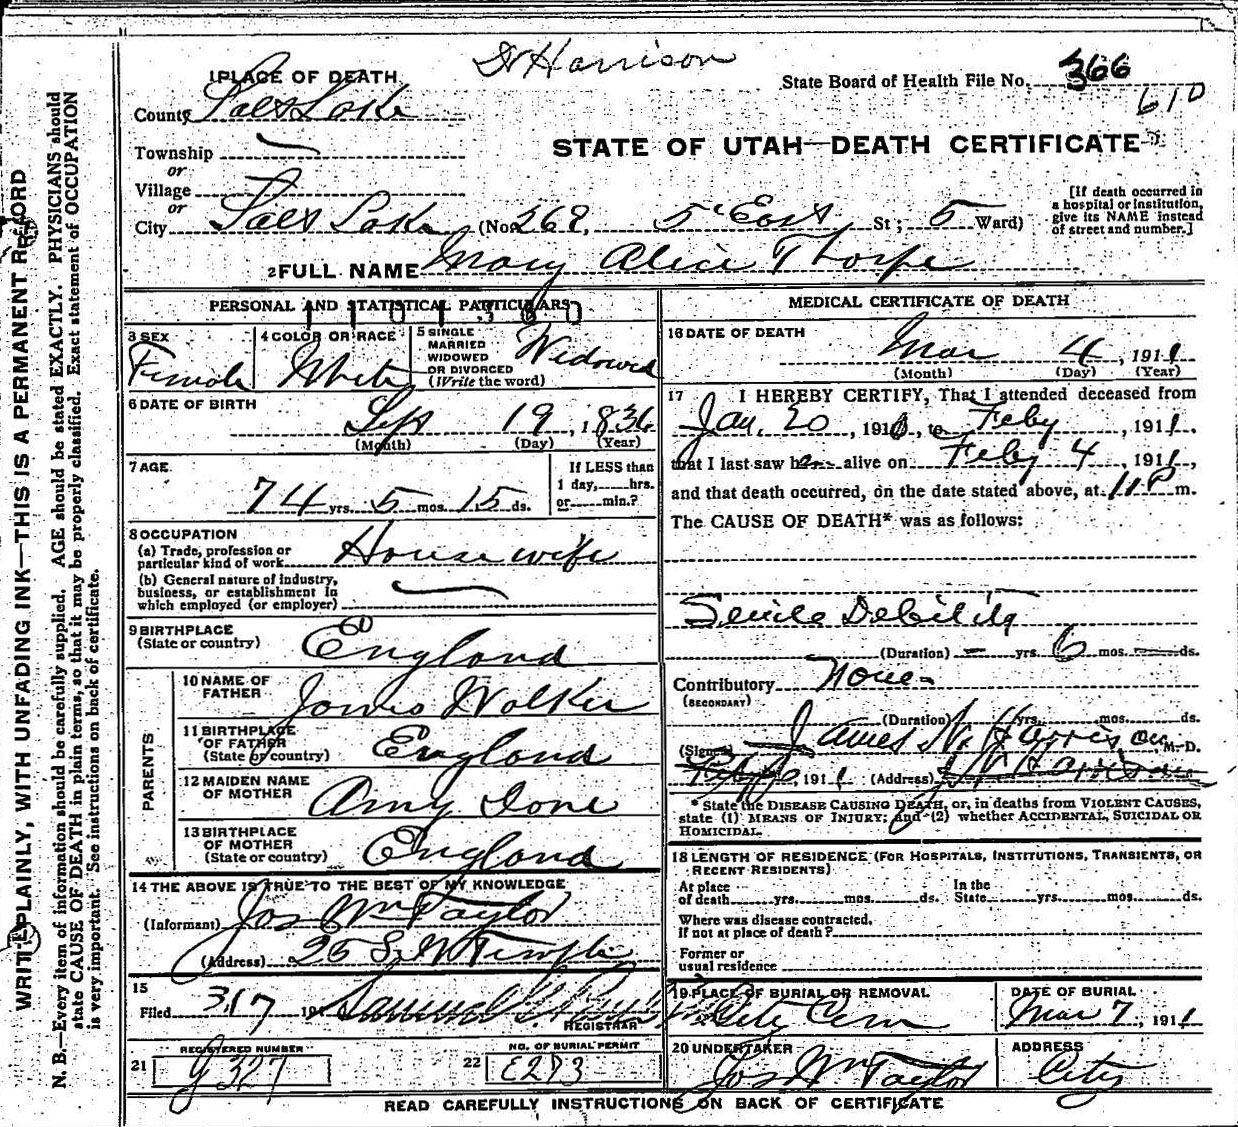 Dr Harrison
1 PLACE OF DEATH
State Board of Health File No. 366
610
County Salt Lake
STATE OF UTAH—DEATH CERTIFICATE
Township
or
Village
or
City Salt Lake (No. 268, 5" East St; 5 Ward)
[If death occurred in
a hospital or institution,
give its NAME instead
of street and number.]
2 FULL NAME Mary Alice Thorpe
PERSONAL AND STATISTICAL PARTICULARS
1101360
3 SEX
Female
4 COLOR OR RACE
White
5 SINGLE
MARRIED
WIDOWED
OR DIVORCED
(Write the word)
Widowed
6 DATE OF BIRTH
Sept 19, 1836
(Month) (Day) (Year)
7 AGE
74 yrs. 5 mos. 15 ds.
If LESS than
1 day,......hrs.
or......min.?
8 OCCUPATION
(a) Trade, profession or
particular kind of work Housewife
(b) General nature of industry,
business, or establishment in
which employed (or employer)
9 BIRTHPLACE
(State or country)
England
PARENTS
10 NAME OF
FATHER
James Walker
11 BIRTHPLACE
OF FATHER
(State or country)
England
12 MAIDEN NAME
OF MOTHER
Amy
13 BIRTHPLACE
OF MOTHER
(State or country)
England
14 THE ABOVE IS TRUE TO THE BEST OF MY KNOWLEDGE
(Informant) Jos Wm Taylor
(Address) 26 S. W Temple
15
Filed 3/7 191
Samuel G.
REGISTRAR
21
REGISTERED NUMBER
J327
22
NO. OF BURIAL PERMIT
E293
MEDICAL CERTIFICATE OF DEATH
16 DATE OF DEATH
Mar 4, 1911
(Month) (Day) (Year)
17 I HEREBY CERTIFY, That I attended deceased from
Jan. 20, 191, to Feby, 1911.
that I last saw her alive on Feby 4, 1911,
and that death occurred, on the date stated above, at 11 P m.
The CAUSE OF DEATH* was as follows:
Senile Debility
(Duration) — yrs. 6 mos. — ds.
Contributory None
(SECONDARY)
(Duration) yrs. mos. ds.
(Signed) James N. Harrison M. D.
1911 (Address)
* State the DISEASE CAUSING DEATH, or, in deaths from VIOLENT CAUSES,
state (1) MEANS OF INJURY; and (2) whether ACCIDENTAL, SUICIDAL OR
HOMICIDAL.
18 LENGTH OF RESIDENCE (FOR HOSPITALS, INSTITUTIONS, TRANSIENTS, OR
RECENT RESIDENTS)
At place
of death......yrs......mos......ds.
In the
State......yrs......mos......ds.
Where was disease contracted,
If not at place of death?
Former or
usual residence
19 PLACE OF BURIAL OR REMOVAL
City Cem
DATE OF BURIAL
Mar 7, 1911
20 UNDERTAKER
Jos Wm Taylor
ADDRESS
City
READ CAREFULLY INSTRUCTIONS ON BACK OF CERTIFICATE
WRITE PLAINLY, WITH UNFADING INK—THIS IS A PERMANENT RECORD
N. B.—Every item of information should be carefully supplied. AGE should be stated EXACTLY. PHYSICIANS should
state CAUSE OF DEATH in plain terms, so that it may be properly classified. Exact statement of OCCUPATION
is very important. See instructions on back of certificate.